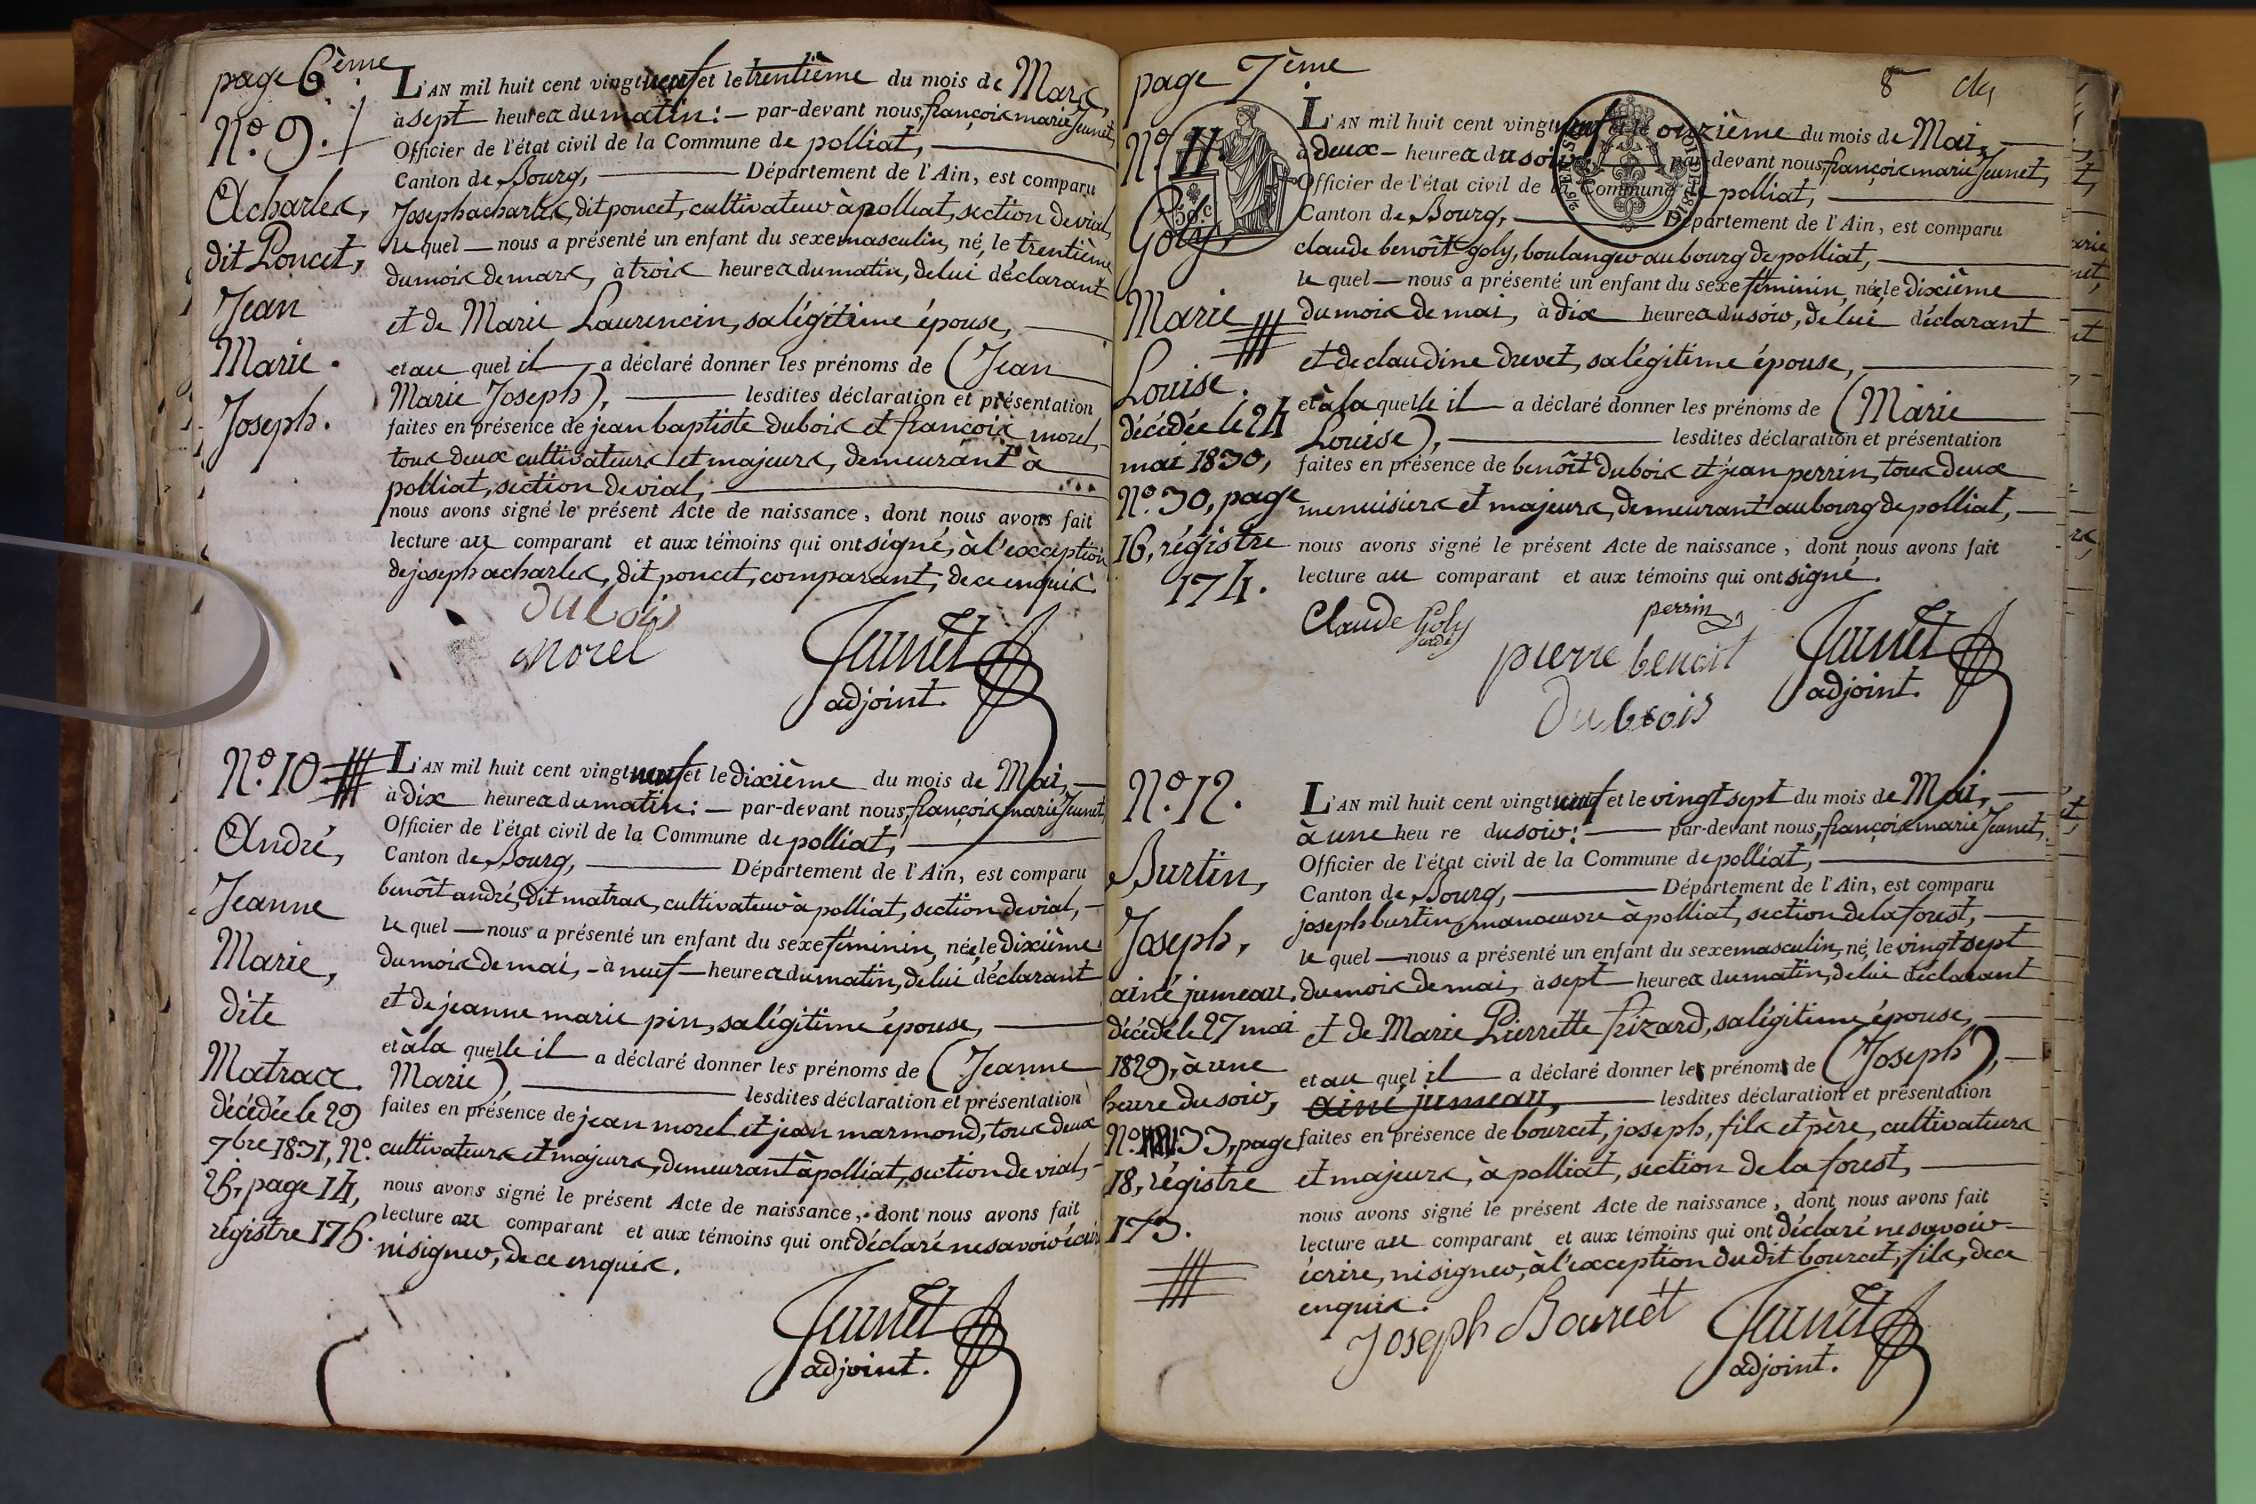 page 6ème
N.º 9.
Acharles,
dit Poncet,
Jean
Marie.
Joseph.
L'AN mil huit cent vingt neuf et le trentième du mois de Mars,
à sept heures du matin: — par-devant nous, françois marie Jeunet,
Officier de l'état civil de la Commune de polliat,
Canton de Bourg, Département de l'Ain, est comparu
Joseph acharles, dit poncet, cultivateur à polliat, section de vial,
le quel — nous a présenté un enfant du sexe masculin, né, le trentième
du mois de mars, à trois heures du matin, de lui déclarant
et de Marie Laurencin, sa légitime épouse,
et au quel il a déclaré donner les prénoms de (Jean
Marie Joseph), lesdites déclaration et présentation
faites en présence de jean baptiste dubois et françois morel,
tous deux cultivateurs et majeurs, demeurant à
polliat, section de vial,
nous avons signé le présent Acte de naissance, dont nous avons fait
lecture au comparant et aux témoins qui ont signé, à l'exception
de joseph acharles, dit poncet, comparant, de ce enquis.
dubois
morel
Jeunet
adjoint.
N.º 10
André,
Jeanne
Marie,
dite
Matras.
décédée le 29
7bre 1831, N.º
26, page 14,
régistre 176.
L'AN mil huit cent vingt neuf et le dixième du mois de Mai,
à dix heures du matin: — par-devant nous, françois marie Jeunet,
Officier de l'état civil de la Commune de polliat,
Canton de Bourg, Département de l'Ain, est comparu
benoît andré, dit matras, cultivateur à polliat, section de vial,
le quel — nous a présenté un enfant du sexe féminin, née, le dixième
du mois de mai, - à neuf — heures du matin, de lui déclarant
et de jeanne marie pin, sa légitime épouse,
et à la quelle il a déclaré donner les prénoms de (Jeanne
Marie), lesdites déclaration et présentation
faites en présence de jean morel et jean marmond, tous deux
cultivateurs et majeurs, demeurant à polliat, section de vial,
nous avons signé le présent Acte de naissance, dont nous avons fait
lecture au comparant et aux témoins qui ont déclaré ne savoir écrire
ni signer, de ce enquis.
Jeunet
adjoint.
page 7ème
8
N.º 11.
50 c
Goly,
Marie
Louise.
décédée le 24
mai 1830,
N.º 30, page
16, régistre
174.
L'AN mil huit cent vingt neuf et le onzième du mois de Mai,
à deux — heures du soir: par-devant nous, françois marie Jeunet,
Officier de l'état civil de la Commune de polliat,
Canton de Bourg, Département de l'Ain, est comparu
claude benoît goly, boulanger au bourg de polliat,
le quel — nous a présenté un enfant du sexe féminin, née, le dixième
du mois de mai, à dix heures du soir, de lui déclarant
et de claudine drevet, sa légitime épouse,
et à la quelle il a déclaré donner les prénoms de (Marie
Louise), lesdites déclaration et présentation
faites en présence de benoît dubois et jean perrin, tous deux
menuisiers et majeurs, demeurant au bourg de polliat,
nous avons signé le présent Acte de naissance, dont nous avons fait
lecture au comparant et aux témoins qui ont signé.
Claude Goly
perrin
pierre benoit
dubois
Jeunet
adjoint.
N.º 12.
Burtin,
Joseph,
ainé jumeau,
décédé le 27 mai
1829, à une
heure du soir,
N.º 33, page
18, régistre
173.
L'AN mil huit cent vingt neuf et le vingt sept du mois de Mai,
à une heu re du soir: par-devant nous, françois marie Jeunet,
Officier de l'état civil de la Commune de polliat,
Canton de Bourg, Département de l'Ain, est comparu
joseph burtin, manoeuvre à polliat, section de la forest,
le quel — nous a présenté un enfant du sexe masculin, né, le vingt sept
du mois de mai, à sept heures du matin, de lui déclarant
et de Marie Pierrette frizard, sa légitime épouse,
et au quel il a déclaré donner les prénoms de (Joseph),
ainé jumeau, lesdites déclaration et présentation
faites en présence de bourcet, joseph, fils et père, cultivateurs
et majeurs, à polliat, section de la forest,
nous avons signé le présent Acte de naissance, dont nous avons fait
lecture au comparant et aux témoins qui ont déclaré ne savoir
écrire, ni signer, à l'exception du dit bourcet, fils, de ce
enquis.
Joseph Bourcet
Jeunet
adjoint.